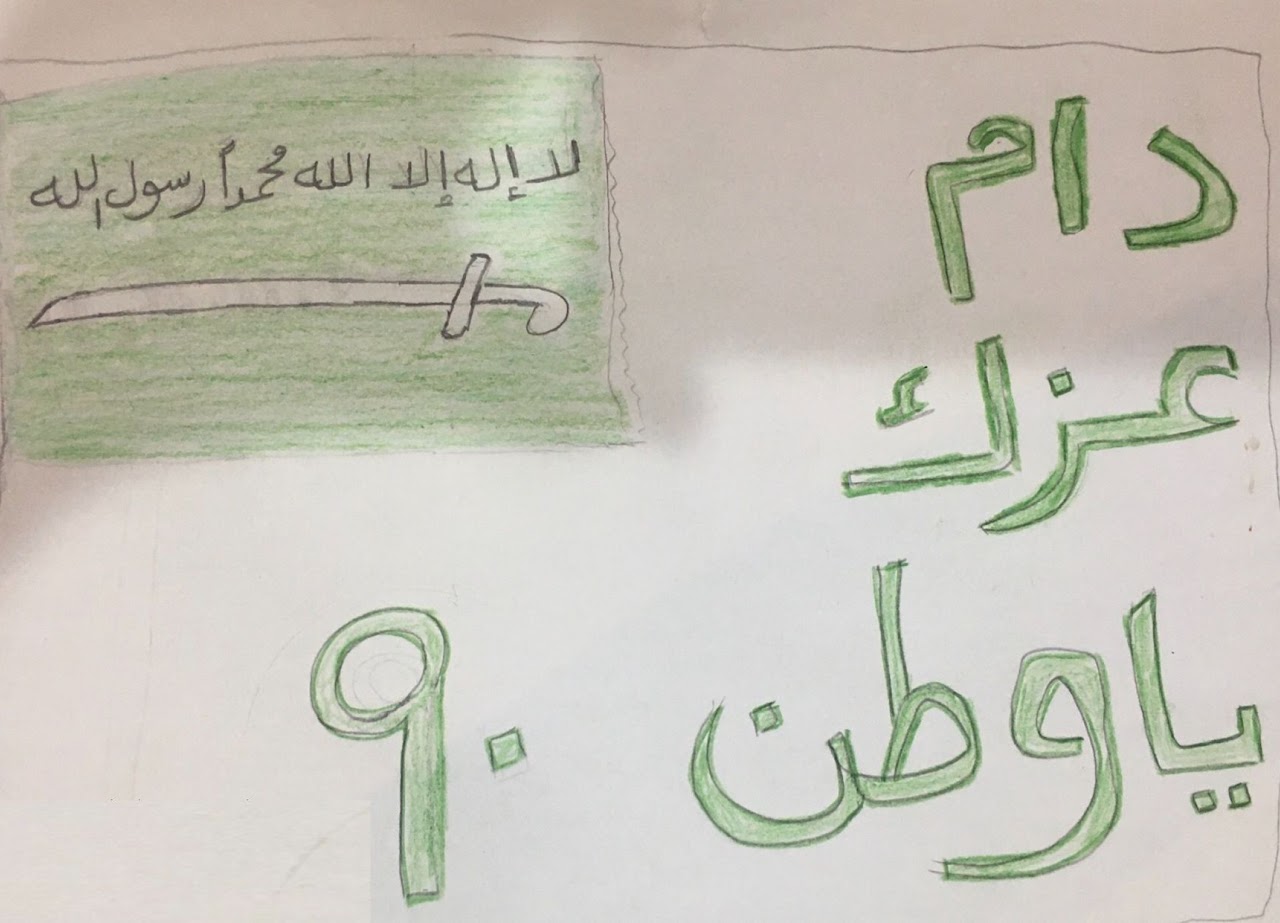 لا إله إلا الله محمداً رسول الله
دام
عزك
يا وطن
٩٠